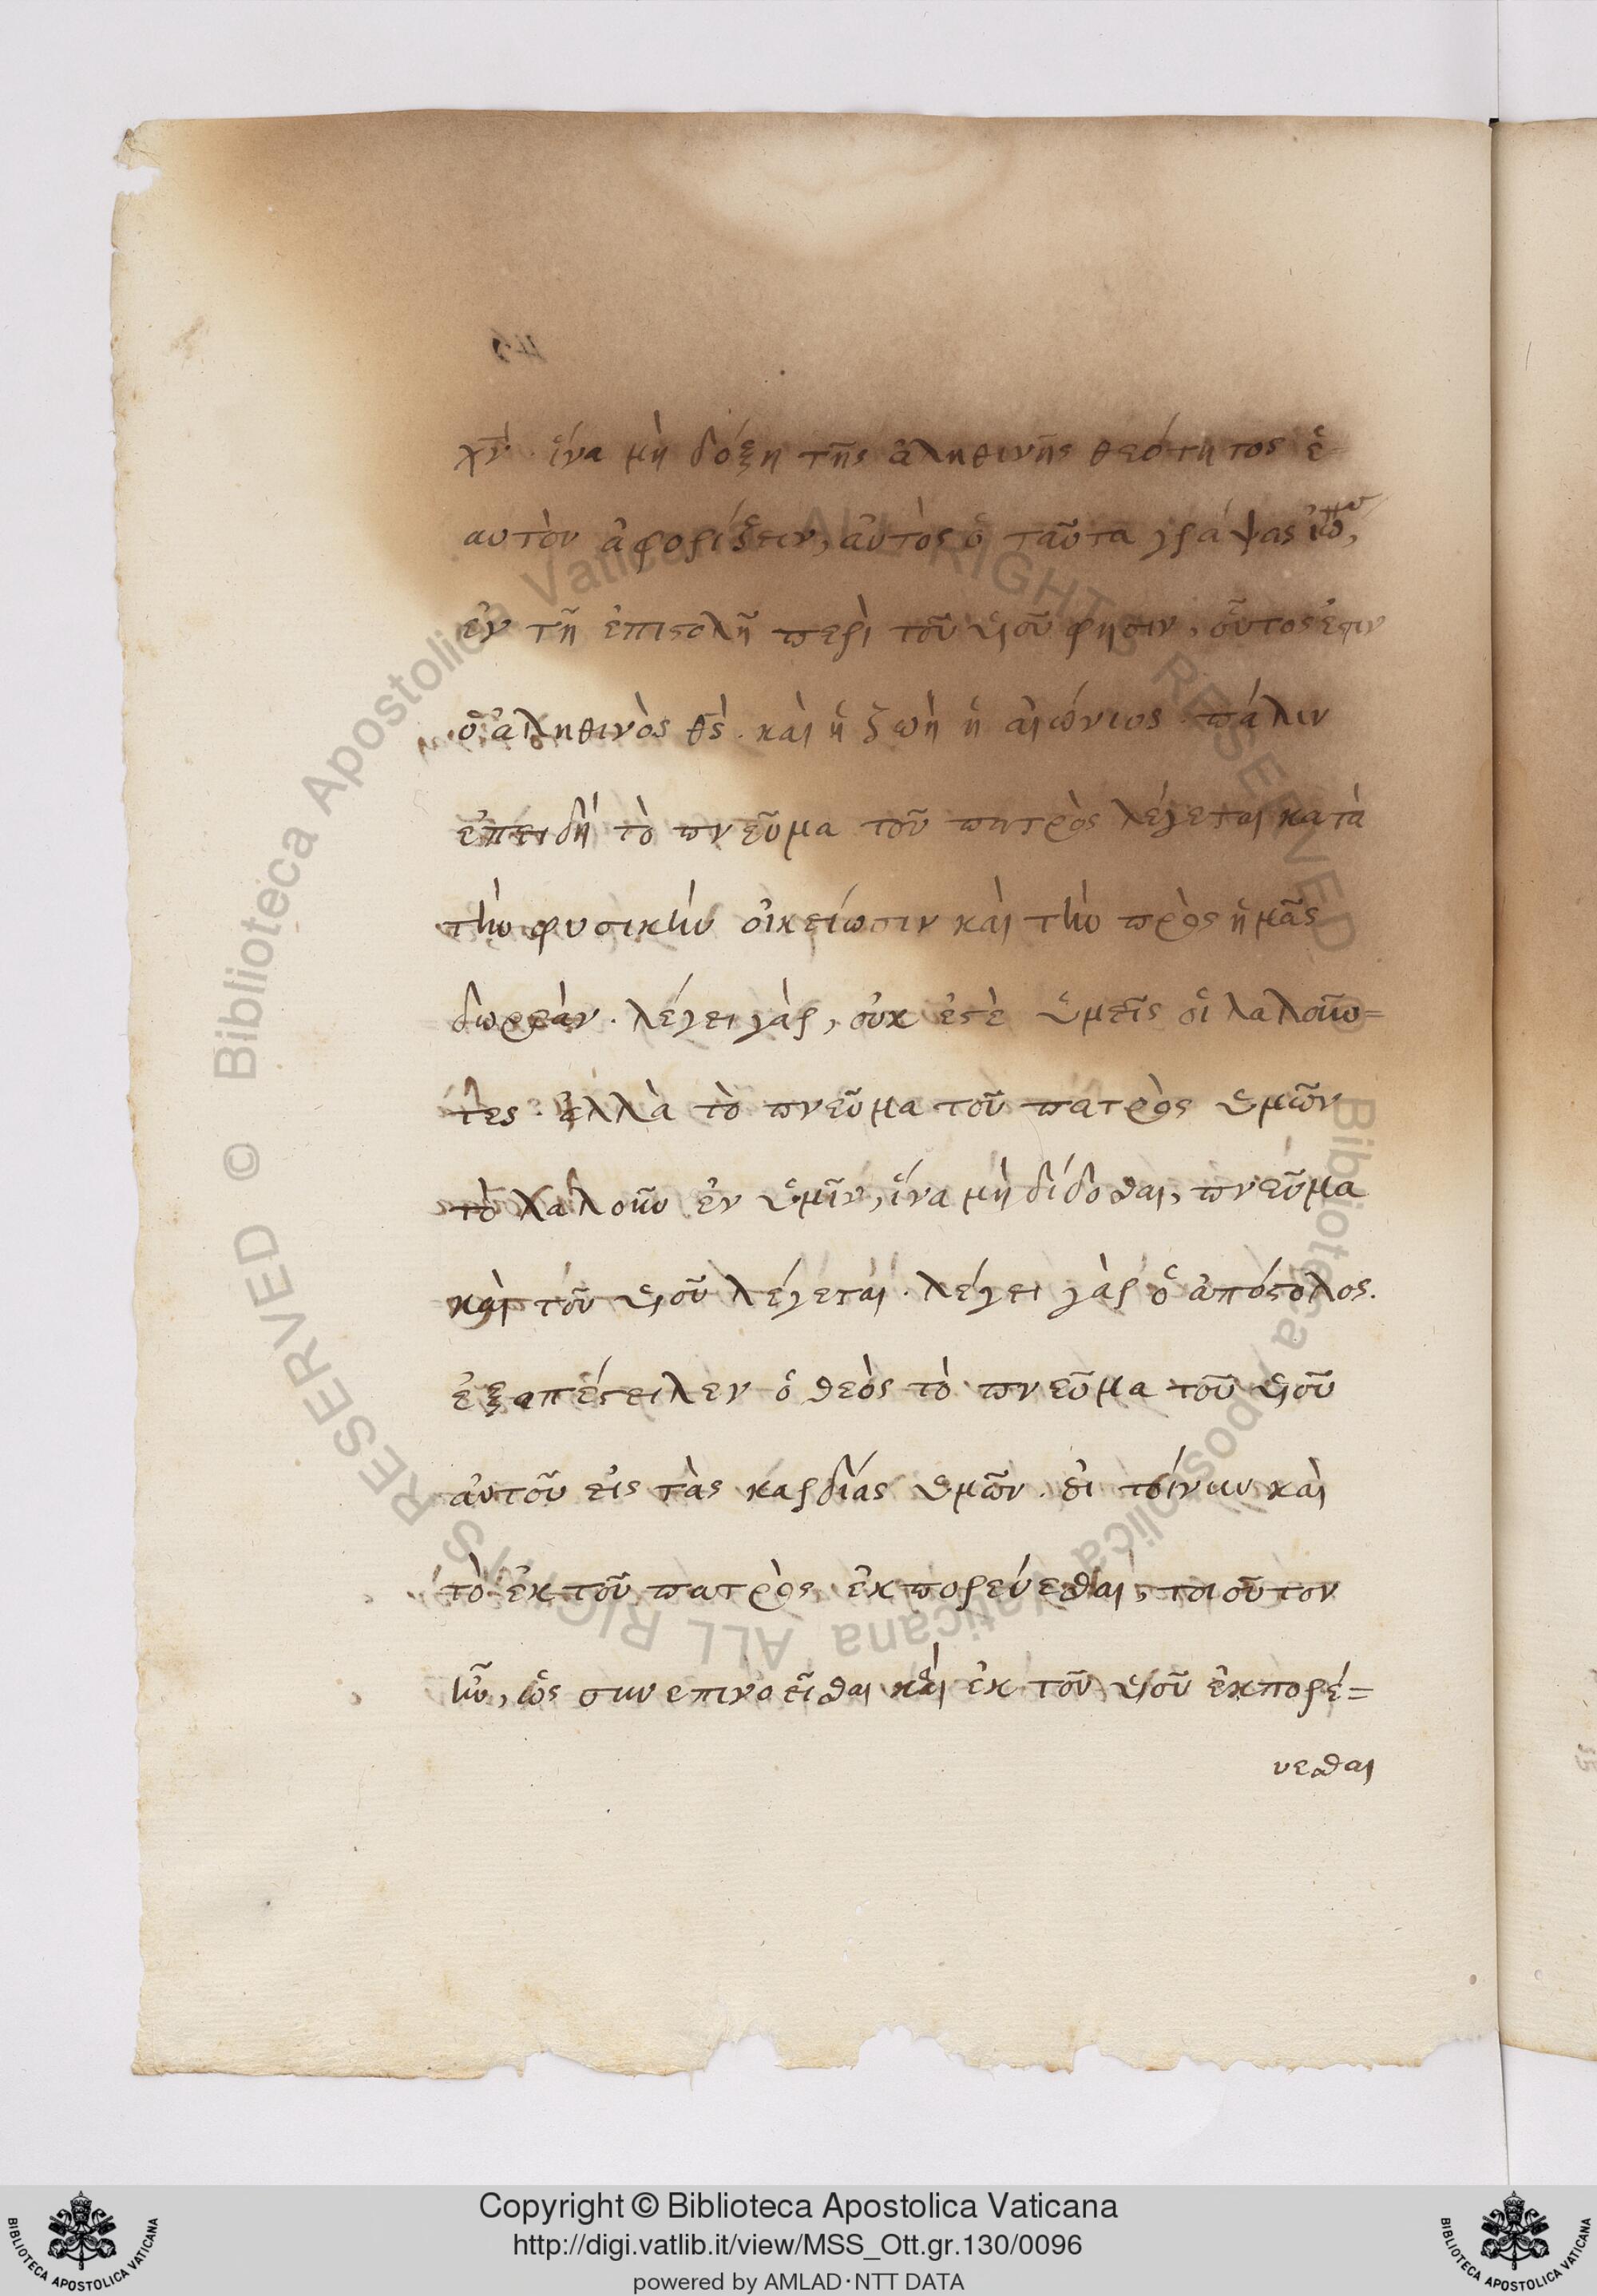 χν· ἵνα μὴ δόξη τῆς ἀληθινῆς θεότητος ἑ-
αυτὸν ἀφορίζειν, αὐτὸς ὁ ταῦτα γράψας
ἐν τῆ ἐπιστολῆ περὶ τοῦ υἱοῦ φησιν, οὗτός ἐστιν
ὁ ἀληθινὸς θς· καὶ ἡ ζωὴ ἡ αἰώνιος· πάλιν
ἐπειδὴ τὸ πνεῦμα τοῦ πατρὸς λέγεται κατὰ
τὴν φυσικὴν οἰκείωσιν καὶ τὴν πρὸς ἡμᾶς
δωρεάν· λέγει γὰρ, οὐκ ἐστὲ ὑμεῖς οἱ λαλοῦν=
τες· ἀλλὰ τὸ πνεῦμα τοῦ πατρὸς ὑμῶν
τὸ λαλοῦν ἐν ὑμῖν, ἵνα μὴ δίδοσθαι, πνεῦμα
καὶ τοῦ υἱοῦ λέγεται· λέγει γὰρ ὁ ἀπόστολος.
ἐξαπέστειλεν ὁ θεὸς τὸ πνεῦμα τοῦ υἱοῦ
αὐτοῦ εἰς τὰς καρδίας ὑμῶν· εἰ τοίνυν καὶ
τὸ ἐκ τοῦ πατρὸς ἐκπορεύεσθαι, τοιοῦτον
ἦν, ὡς συνεπινοεῖσθαι καὶ ἐκ τοῦ υἱοῦ ἐκπορέ=
υεσθαι
© Biblioteca Apostolica Vaticana ALL RIGHTS RESERVED © Biblioteca Apostolica Vaticana ALL RIGHTS RESERVED
BIBLIOTECA APOSTOLICA VATICANA
Copyright © Biblioteca Apostolica Vaticana
http://digi.vatlib.it/view/MSS_Ott.gr.130/0096
powered by AMLAD·NTT DATA
BIBLIOTECA APOSTOLICA VATICANA